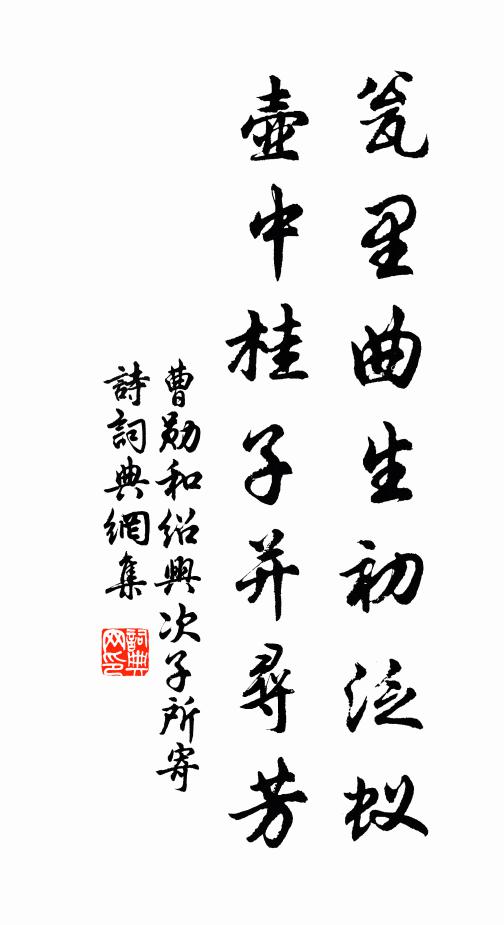 瓮里曲生初泛蚁
壶中桂子并寻芳
曹勋和绍興次子所寄
詩詞典網集
詞典网印